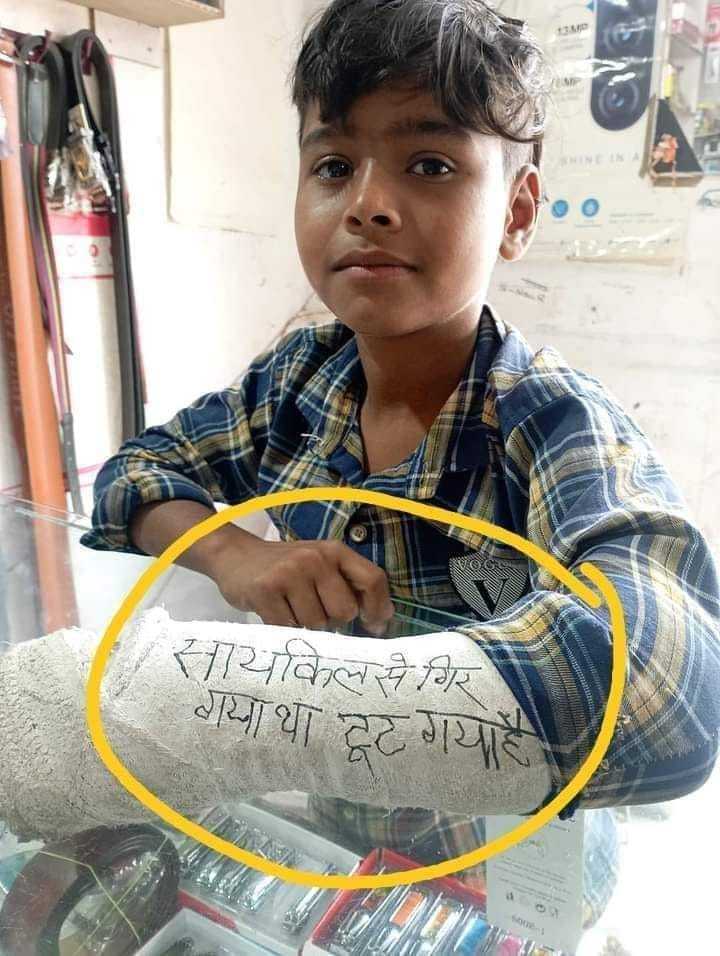 13MP
SHINE IN A
VOGS
V
सायकिल से गिर
गया था टूट गया है